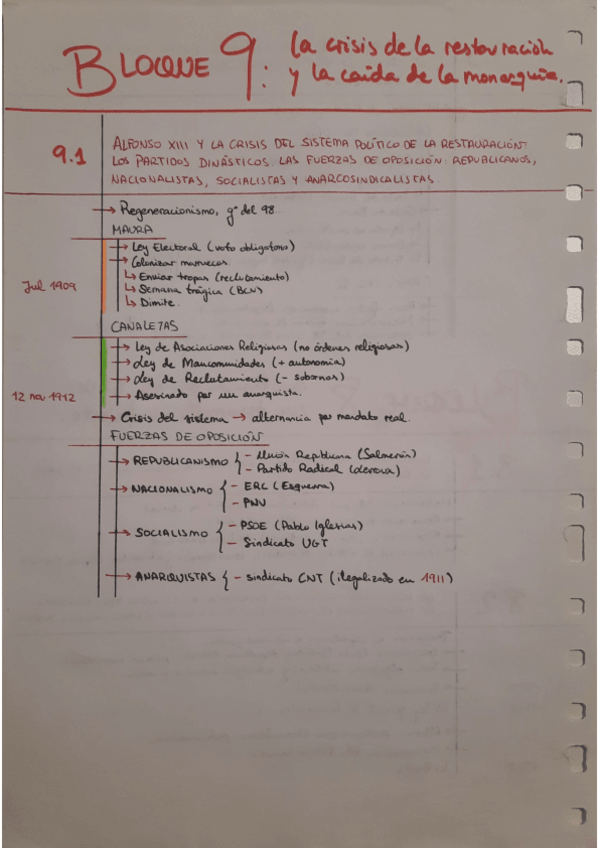 BLOQUE 9: la crisis de la restauración
y la caída de la monarquía.
9.1
ALFONSO XIII Y LA CRISIS DEL SISTEMA POLÍTICO DE LA RESTAURACIÓN:
LOS PARTIDOS DINÁSTICOS. LAS FUERZAS DE OPOSICIÓN: REPUBLICANOS,
NACIONALISTAS, SOCIALISTAS Y ANARCOSINDICALISTAS.
→ Regeneracionismo, gº del 98.
MAURA
→ Ley Electoral (voto obligatorio)
→ Colonizar marruecos.
↳ Enviar tropas (reclutamiento)
Jul 1909
↳ Semana trágica (BCN)
↳ Dimite.
CANALETAS
→ Ley de Asociaciones Religiosas (no órdenes religiosas)
→ Ley de Mancomunidades (+ autonomía)
→ Ley de Reclutamiento (- sobornos)
12 nov 1912
→ Asesinado por un anarquista.
→ Crisis del sistema → alternancia por mandato real.
FUERZAS DE OPOSICIÓN
→ REPUBLICANISMO { - Unión Republicana (Salmerón)
- Partido Radical (Lerroux)
→ NACIONALISMO { - ERC (Esquerra)
- PNV
→ SOCIALISMO { - PSOE (Pablo Iglesias)
- Sindicato UGT
→ ANARQUISTAS { - sindicato CNT (ilegalizado en 1911)